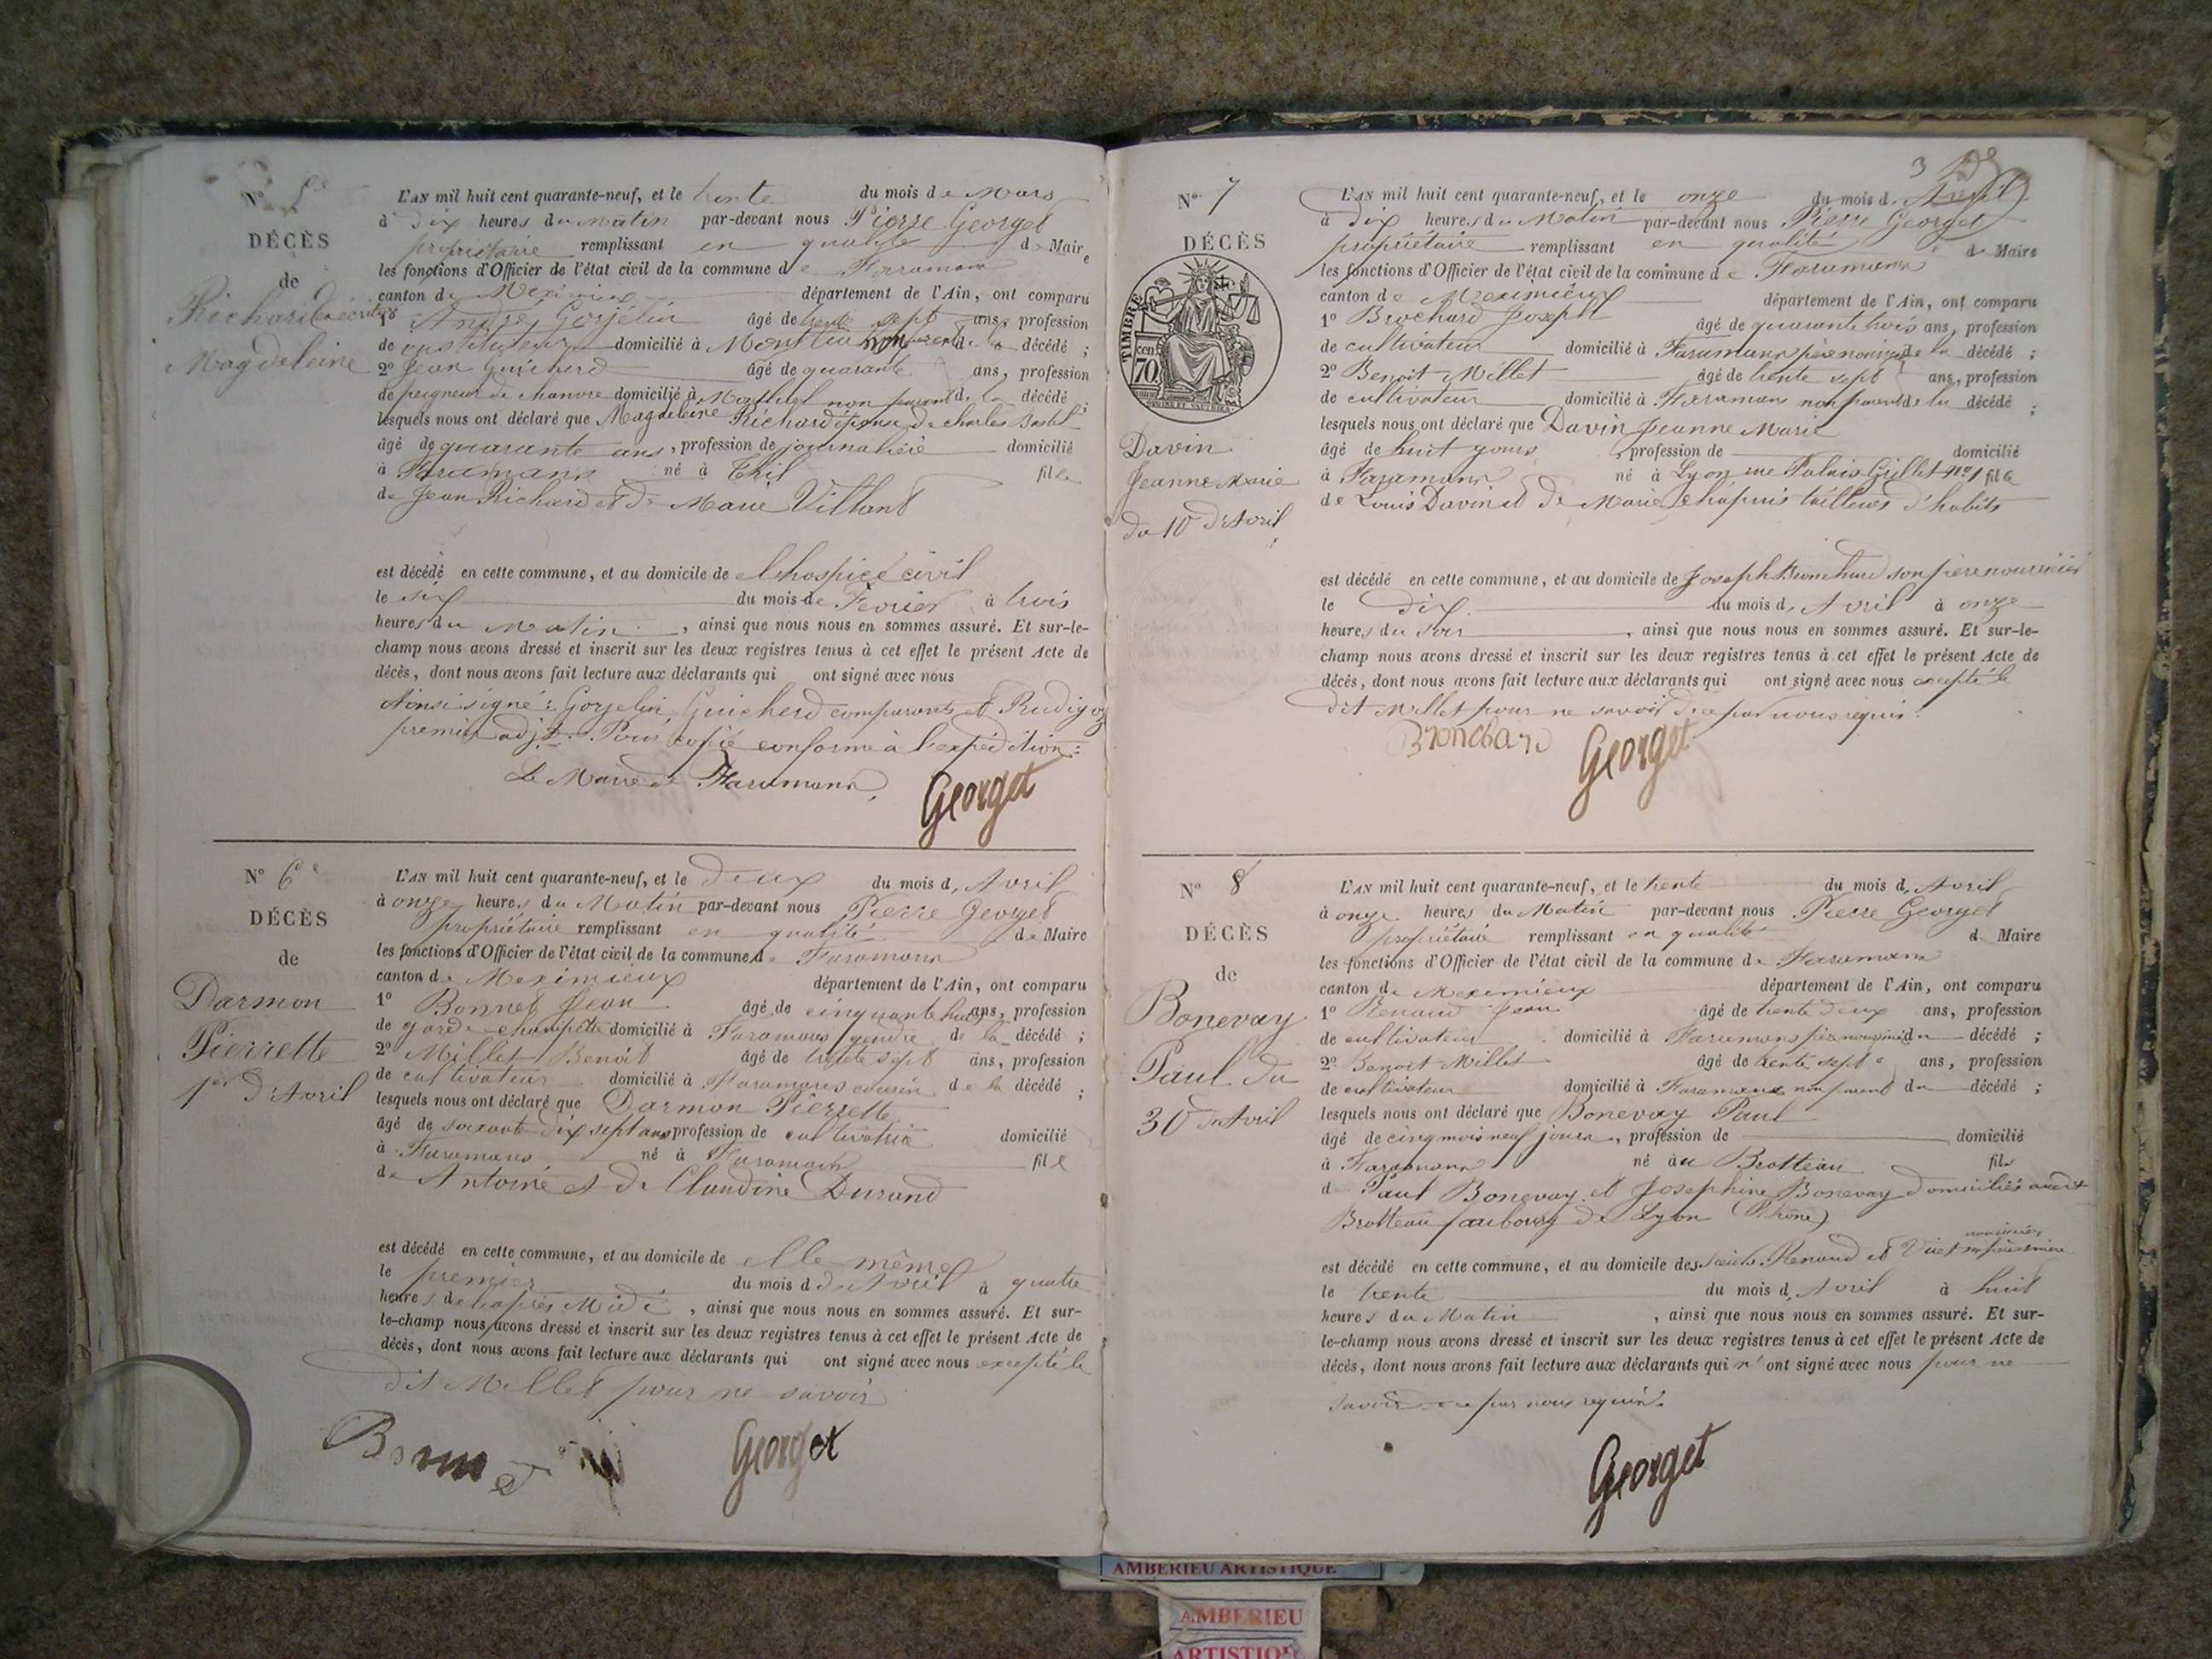 N° 5e
DÉCÈS
de
Richard
Magdeleine
L'AN mil huit cent quarante-neuf, et le trente du mois de Mars
à Dix heures du Matin par-devant nous Pierre Georget
propriétaire remplissant en qualité de Maire
les fonctions d'Officier de l'état civil de la commune de Faramans
canton de Meximieux département de l'Ain, ont comparu
1° André Gorjelin âgé de trente sept ans, profession
de instituteur domicilié à Montluel non parent de la décédé ;
2° Jean Guicherd âgé de quarante ans, profession
de peigneur de chanvre domicilié à Montluel non parent de la décédé ;
lesquels nous ont déclaré que Magdeleine Richard épouse de Charles
âgé de quarante ans, profession de journalière domicilié
à Faramans né à Thil fille
de Jean Richard et de Marie Villard
est décédé en cette commune, et au domicile de l'hospice civil
le six du mois de Fevrier à trois
heures du Matin, ainsi que nous nous en sommes assuré. Et sur-le-
champ nous avons dressé et inscrit sur les deux registres tenus à cet effet le présent Acte de
décès, dont nous avons fait lecture aux déclarants qui ont signé avec nous
Ainsi signé : Gorjelin Guicherd comparants et Rudigoz
premier adjt. Pour copie conforme à l'expédition :
Le Maire de Faramans,
Georget
N° 6e
DÉCÈS
de
Darmon
Pierrette
1er d'Avril
L'AN mil huit cent quarante-neuf, et le Deux du mois d'Avril
à onze heures du Matin par-devant nous Pierre Georget
propriétaire remplissant en qualité de Maire
les fonctions d'Officier de l'état civil de la commune de Faramans
canton de Meximieux département de l'Ain, ont comparu
1° Bonnet Jean âgé de cinquante huit ans, profession
de garde champêtre domicilié à Faramans gendre de la décédé ;
2° Millet Benoit âgé de trente sept ans, profession
de cultivateur domicilié à Faramans cousin de la décédé ;
lesquels nous ont déclaré que Darmon Pierrette
âgé de soixante dix sept ans profession de cultivatrice domicilié
à Faramans né à Faramans fille
de Antoine et de Claudine Durand
est décédé en cette commune, et au domicile de elle même
le premier du mois d'Avril à quatre
heures de l'après Midi, ainsi que nous nous en sommes assuré. Et sur-
le-champ nous avons dressé et inscrit sur les deux registres tenus à cet effet le présent Acte de
décès, dont nous avons fait lecture aux déclarants qui ont signé avec nous excepté le
dit Millet pour ne savoir
Bonnet Georget
3
N° 7
DÉCÈS
TIMBRE
cen. 70.
Davin
Jeanne Marie
du 10 d'Avril
L'AN mil huit cent quarante-neuf, et le onze du mois d'Avril
à Dix heures du Matin par-devant nous Pierre Georget
propriétaire remplissant en qualité de Maire
les fonctions d'Officier de l'état civil de la commune de Faramans
canton de Meximieux département de l'Ain, ont comparu
1° Brochard Joseph âgé de quarante trois ans, profession
de cultivateur domicilié à Faramans père nourricier de la décédé ;
2° Benoit Millet âgé de trente sept ans, profession
de cultivateur domicilié à Faramans non parent de la décédé ;
lesquels nous ont déclaré que Davin Jeanne Marie
âgé de huit jours profession de domicilié
à Faramans né à Lyon rue Palais Grillet no 1 fille
de Louis Davin et de Marie Chapuis tailleurs d'habits
est décédé en cette commune, et au domicile de Joseph Bronchard son père nourricier
le Dix du mois d'Avril à onze
heures du soir, ainsi que nous nous en sommes assuré. Et sur-le-
champ nous avons dressé et inscrit sur les deux registres tenus à cet effet le présent Acte de
décès, dont nous avons fait lecture aux déclarants qui ont signé avec nous excepté le
dit Millet pour ne savoir de ce par nous requis.
Bronchard Georget
N° 8
DÉCÈS
de
Bonevay
Paul du
30 d'Avril
L'AN mil huit cent quarante-neuf, et le trente du mois d'Avril
à onze heures du Matin par-devant nous Pierre Georget
propriétaire remplissant en qualité de Maire
les fonctions d'Officier de l'état civil de la commune de Faramans
canton de Meximieux département de l'Ain, ont comparu
1° Renaud Jean âgé de trente deux ans, profession
de cultivateur domicilié à Faramans père nourricier du décédé ;
2° Benoit Millet âgé de trente sept ans, profession
de cultivateur domicilié à Faramans non parent du décédé ;
lesquels nous ont déclaré que Bonevay Paul
âgé de cinq mois neuf jours, profession de domicilié
à Faramans né au Brotteau fils
de Paul Bonevay et Josephine Bonevay domiciliés audit
Brotteau faubourg de Lyon (Rhône)
est décédé en cette commune, et au domicile des Renaud et
le trente du mois d'Avril à huit
heures du Matin, ainsi que nous nous en sommes assuré. Et sur-
le-champ nous avons dressé et inscrit sur les deux registres tenus à cet effet le présent Acte de
décès, dont nous avons fait lecture aux déclarants qui n'ont signé avec nous pour ne
savoir de ce par nous requis.
Georget
AMBERIEU ARTISTIQUE
AMBERIEU
ARTISTIQUE